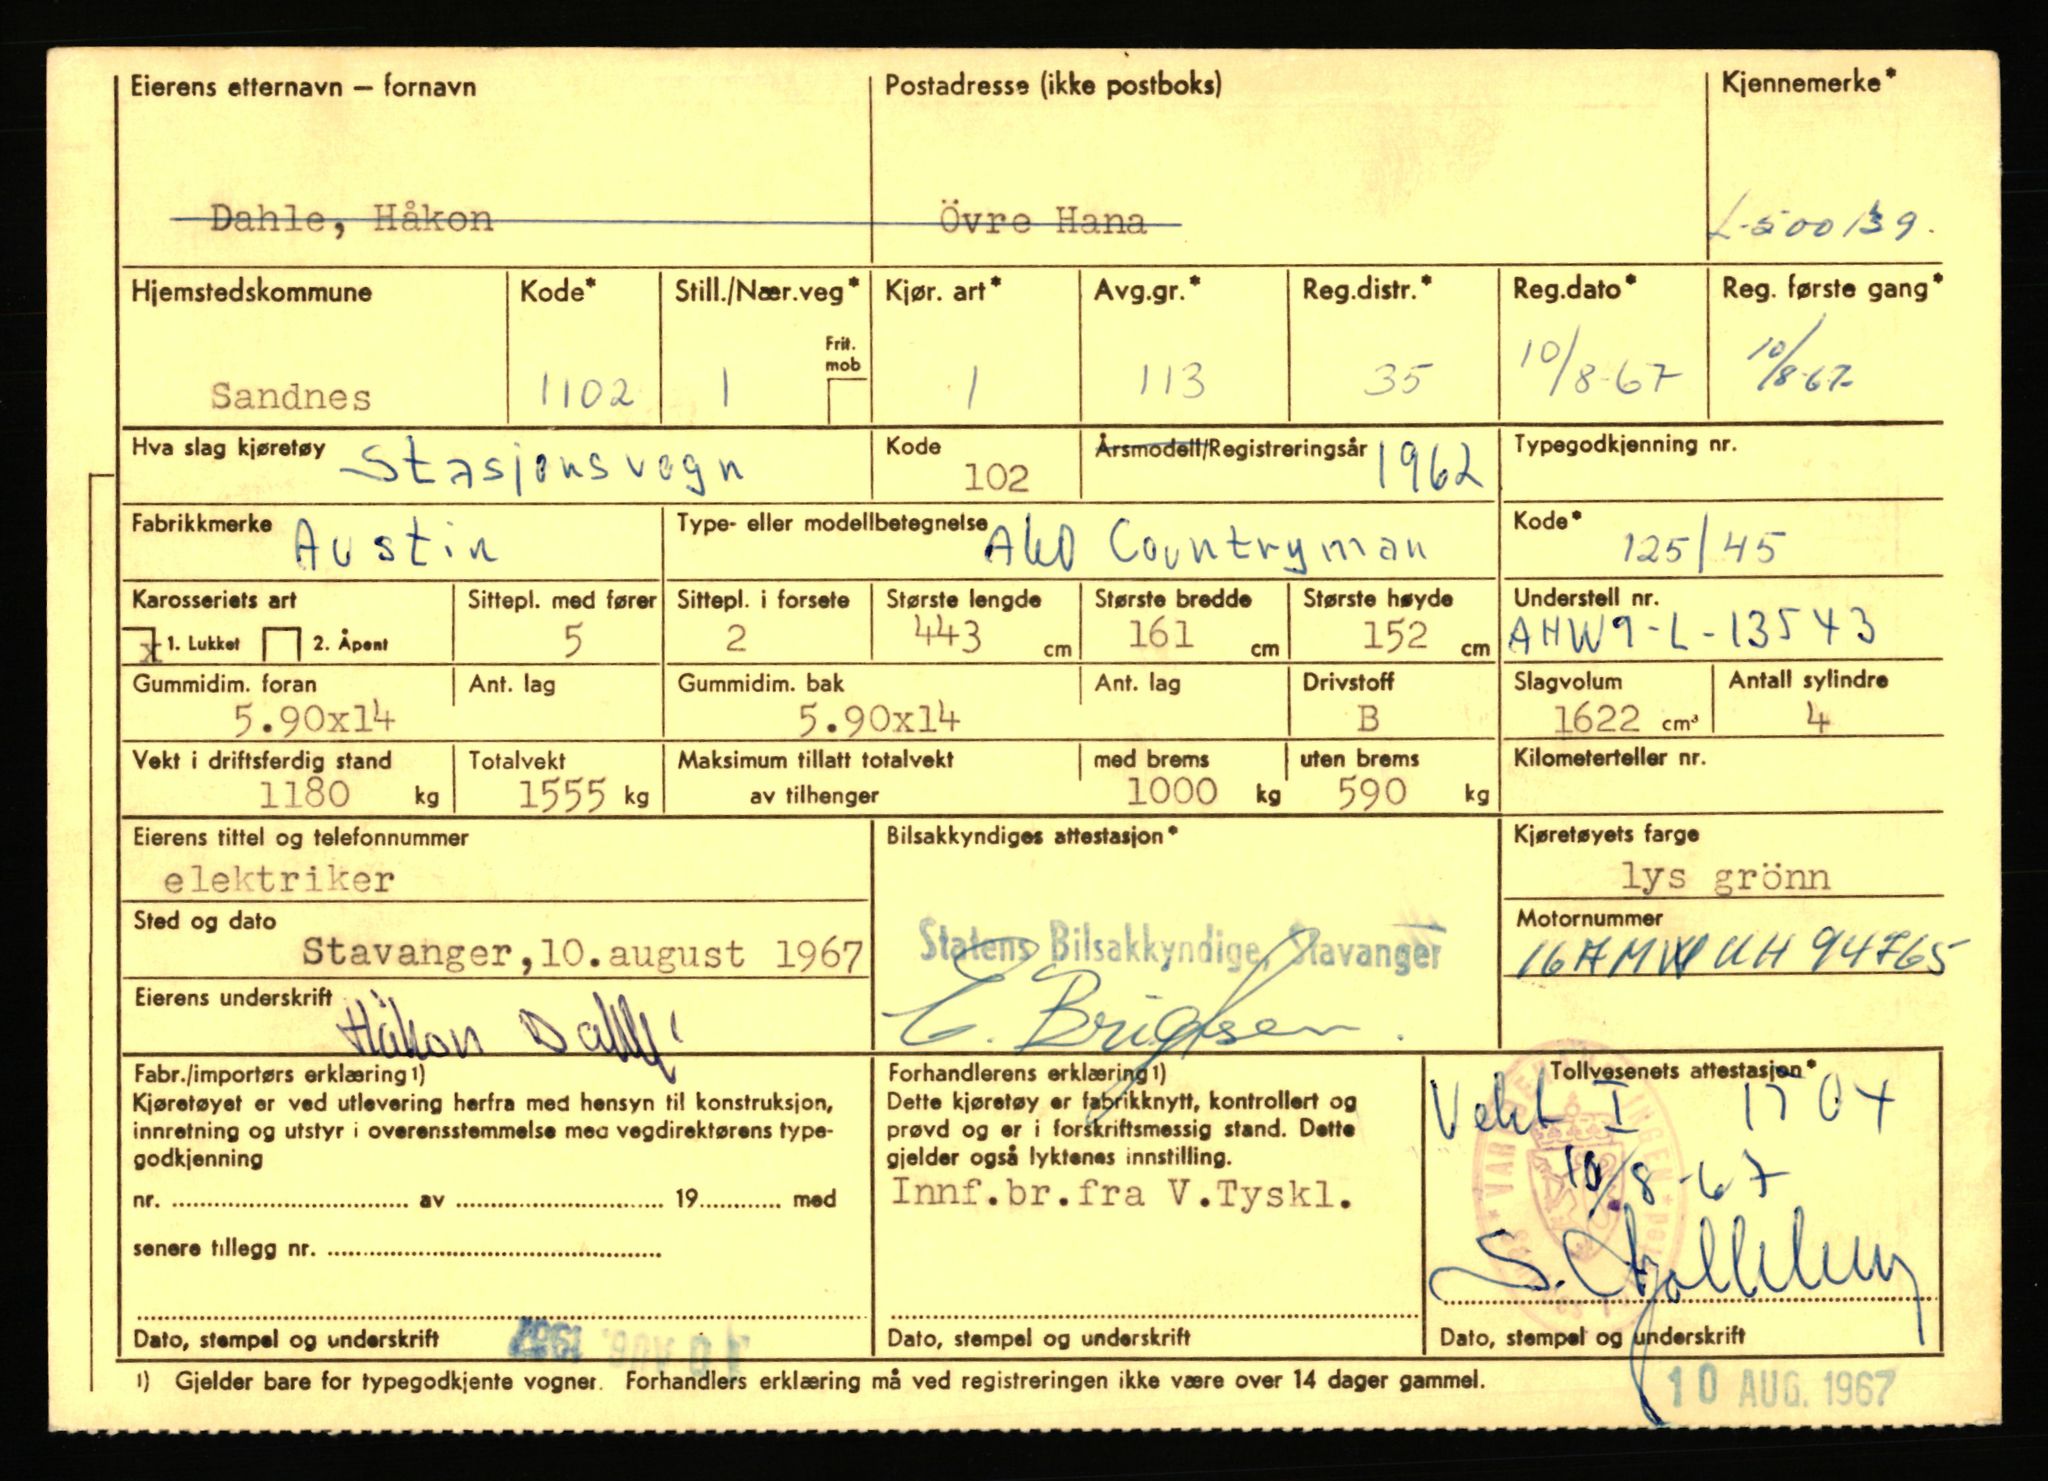 Eierens etternavn – fornavn Postadresse (ikke postboks) Kjennemerke*
Dahle, Håkon Övre Hana L-500139.
Hjemstedskommune Kode* Still./Nær.veg* Kjør. art* Avg.gr.* Reg.distr.* Reg.dato* Reg. første gang*
Frit.
mob
Sandnes 1102 1 1 113 35 10/8-67 10/8-67
Hva slag kjøretøy Stasjonsvogn Kode 102 Årsmodell/Registreringsår 1962 Typegodkjenning nr.
Fabrikkmerke Austin Type- eller modellbetegnelse A60 Countryman Kode* 125/45
Karosseriets art Sittepl. med fører Sittepl. i forsete Største lengde Største bredde Største høyde Understell nr.
x 1. Lukket 2. Åpent 5 2 443 cm 161 cm 152 cm AHW9-L-13543
Gummidim. foran Ant. lag Gummidim. bak Ant. lag Drivstoff Slagvolum Antall sylindre
5.90x14 5.90x14 B 1622 cm³ 4
Vekt i driftsferdig stand Totalvekt Maksimum tillatt totalvekt med brems uten brems Kilometerteller nr.
1180 kg 1555 kg av tilhenger 1000 kg 590 kg
Eierens tittel og telefonnummer Bilsakkyndiges attestasjon* Kjøretøyets farge
elektriker lys grönn
Sted og dato Motornummer
Stavanger, 10. august 1967 Statens Bilsakkyndige, Stavanger 16AMWUH94765
Eierens underskrift Håkon Dahle
Fabr./importørs erklæring 1) Forhandlerens erklæring 1) Tollvesenets attestasjon*
Kjøretøyet er ved utlevering herfra med hensyn til konstruksjon, Dette kjøretøy er fabrikknytt, kontrollert og Vekt I 1704
innretning og utstyr i overensstemmelse med vegdirektørens type- prøvd og er i forskriftsmessig stand. Dette
godkjenning gjelder også lyktenes innstilling. 10/8-67
nr. av 19 med Innf.br.fra V.Tyskl.
senere tillegg nr.
Dato, stempel og underskrift 10 AUG. 1967 Dato, stempel og underskrift Dato, stempel og underskrift
1) Gjelder bare for typegodkjente vogner. Forhandlers erklæring må ved registreringen ikke være over 14 dager gammel. 10 AUG. 1967